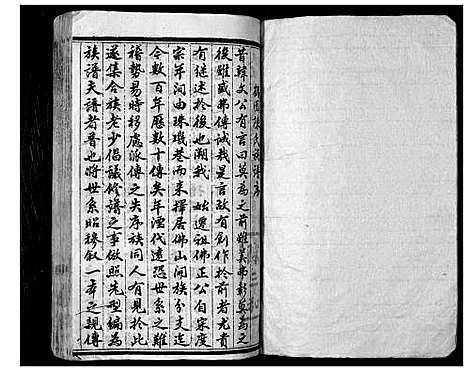 陳氏族譜序
昔韓文公有言曰莫為之前雖美弗彰莫為之
後雖盛弗傳誠哉是言故有創作於前者尤貴
有継述於後也溯我 始遷祖佛正公自宋度
宗年间由珠璣巷而来擇居佛山開族分支迄
今數百年歷數十傳矣年湮代遠恐世系之難
稽勢易時移慮脉傳之失序族同人有見於此
遂集合族老少倡議修譜之事做照先型編為
族譜夫譜者普也將世系昭穆叙一本之親傳